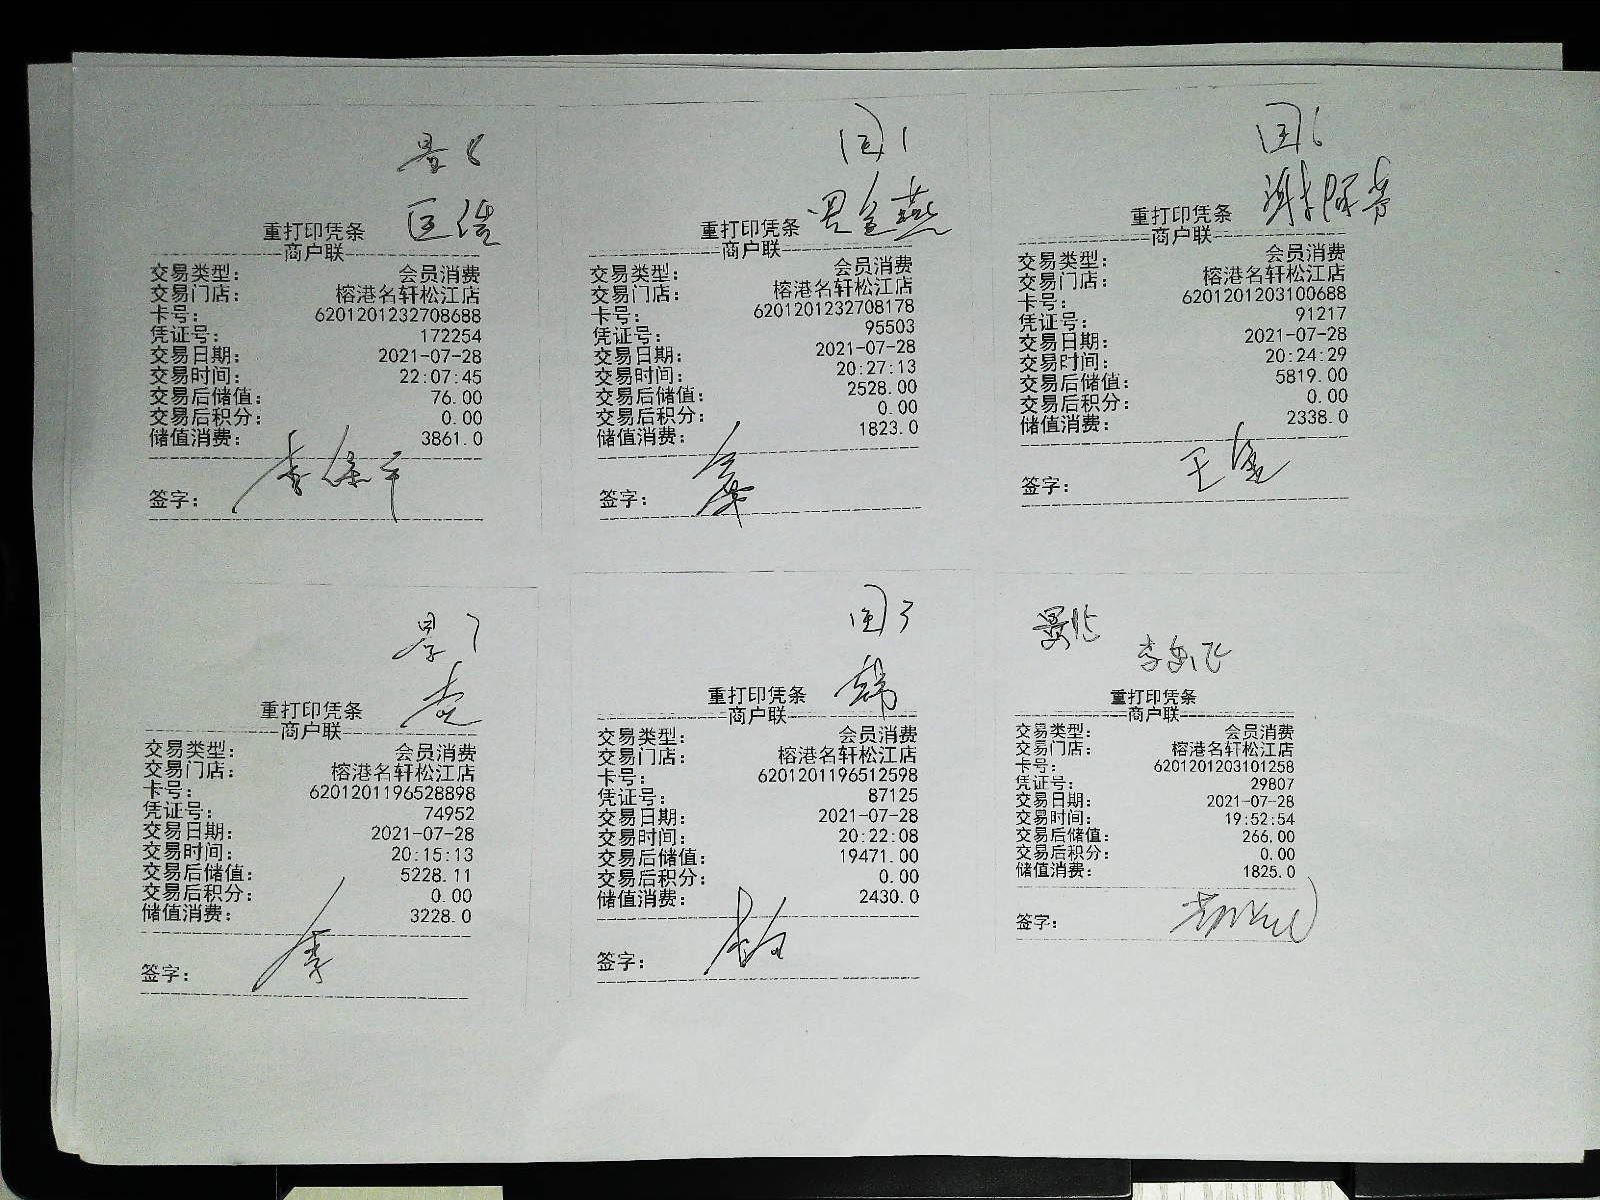 景8
匡俊
重打印凭条
商户联
交易类型： 会员消费
交易门店： 榕港名轩松江店
卡号： 6201201232708688
凭证号： 172254
交易日期： 2021-07-28
交易时间： 22:07:45
交易后储值： 76.00
交易后积分： 0.00
储值消费： 3861.0
签字：
回1
重打印凭条
商户联
交易类型： 会员消费
交易门店： 榕港名轩松江店
卡号： 6201201232708178
凭证号： 95503
交易日期： 2021-07-28
交易时间： 20:27:13
交易后储值： 2528.00
交易后积分： 0.00
储值消费： 1823.0
签字：
回6
重打印凭条
商户联
交易类型： 会员消费
交易门店： 榕港名轩松江店
卡号： 6201201203100688
凭证号： 91217
交易日期： 2021-07-28
交易时间： 20:24:29
交易后储值： 5819.00
交易后积分： 0.00
储值消费： 2338.0
签字：
景7
重打印凭条
商户联
交易类型： 会员消费
交易门店： 榕港名轩松江店
卡号： 6201201196528898
凭证号： 74952
交易日期： 2021-07-28
交易时间： 20:15:13
交易后储值： 5228.11
交易后积分： 0.00
储值消费： 3228.0
签字：
回3
韩
重打印凭条
商户联
交易类型： 会员消费
交易门店： 榕港名轩松江店
卡号： 6201201196512598
凭证号： 87125
交易日期： 2021-07-28
交易时间： 20:22:08
交易后储值： 19471.00
交易后积分： 0.00
储值消费： 2430.0
签字：
重打印凭条
商户联
交易类型： 会员消费
交易门店： 榕港名轩松江店
卡号： 6201201203101258
凭证号： 29807
交易日期： 2021-07-28
交易时间： 19:52:54
交易后储值： 266.00
交易后积分： 0.00
储值消费： 1825.0
签字：